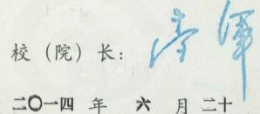 校（院）长：
二〇一四 年 六 月 二十